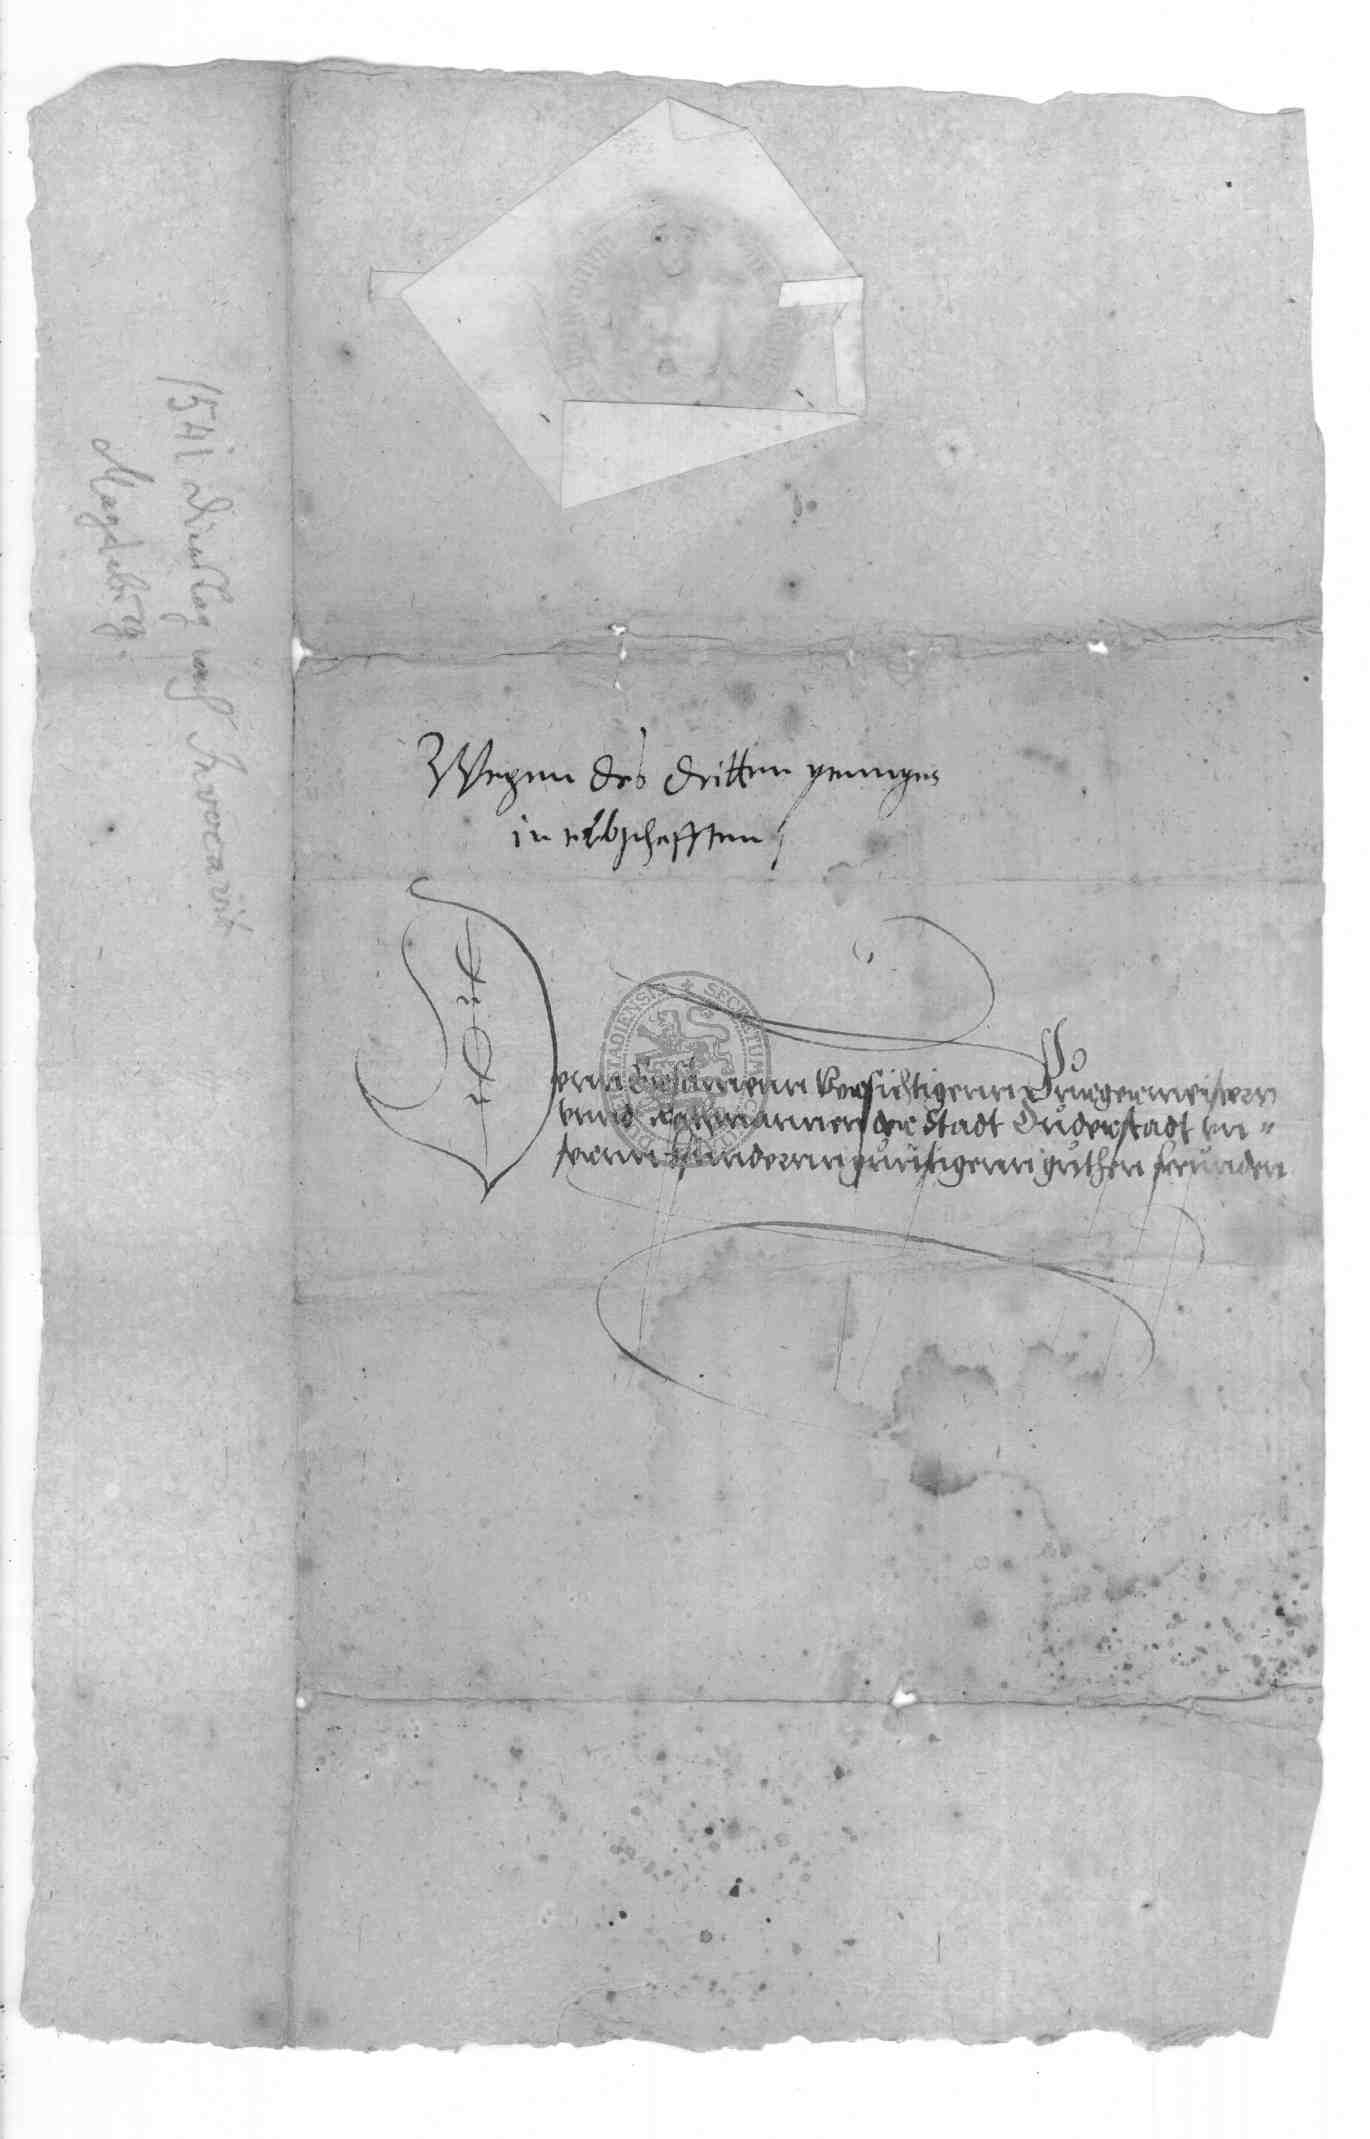 1541 Dienstag nach Invocavit
Magdeburg.
Wegenn des dritten pfenniges
in erbschafften
Denn Ersamenn Vorsichtigenn Burgermeistern
vnnd Rathmannen der Stadt Duderstadt vn=
sernn besundernn gunstigenn guthen freunden
SECRETUM